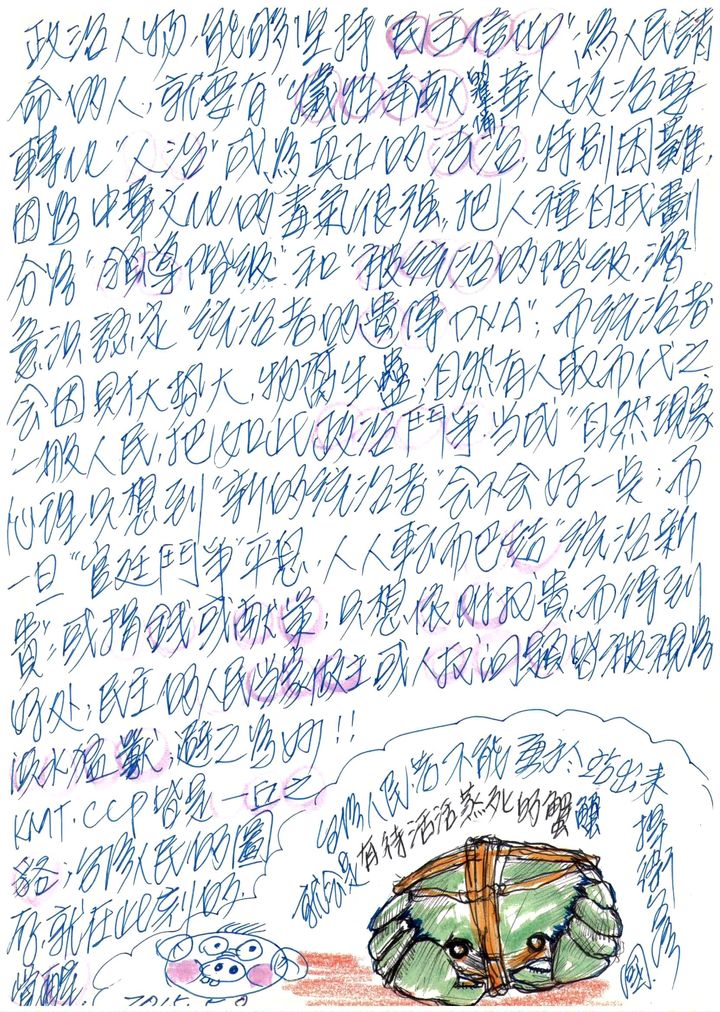 政治人物,能夠坚持"民主信仰",為人民請
命的人,就要有"犧牲奉献"準備 華人政治要
轉化"人治"成為真正的法治,特別困難,
因為中華文化的毒氣很强,把人種自我劃
分為"領導階級"和"被統治的階級,潛
意識認定"統治者的遺傳DNA";而統治者
会因財大勢大,物腐生蟲,自然有人取而代之
一般人民,把如此政治鬥爭当成"自然"現象
心裡只想到"新的統治者"会不会好一点;而
一旦"宫廷鬥爭"平息,人人転而巴结"統治新
貴",或捐錢或献策,只想依附权貴,而得到
好处,民主的人民当家做主或人权问題皆被視為
洪水猛獸,避之為妙!!
KMT.CCP皆是一丘之
貉,台灣人民的圖
存,就在此刻的
覺醒 2015.5.8
台灣人民若不能勇於站出来
捍衛家國
就会是有待活活蒸死的螃蟹